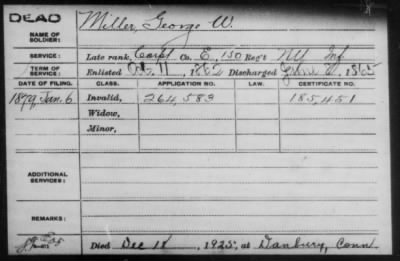 DEAD
Miller, George W.
NAME OF SOLDIER:
SERVICE: Late rank, Corpl Co. E, 150 Reg't NY Inf
TERM OF SERVICE: Enlisted Oct. 11, 1862 Discharged June 1865
DATE OF FILING. CLASS. APPLICATION NO. LAW. CERTIFICATE NO.
1879, Jan. 6 Invalid, 264,583 185,451
Widow,
Minor,
ADDITIONAL SERVICES:
REMARKS:
Died Dec 18, 1925, at Danbury, Conn.